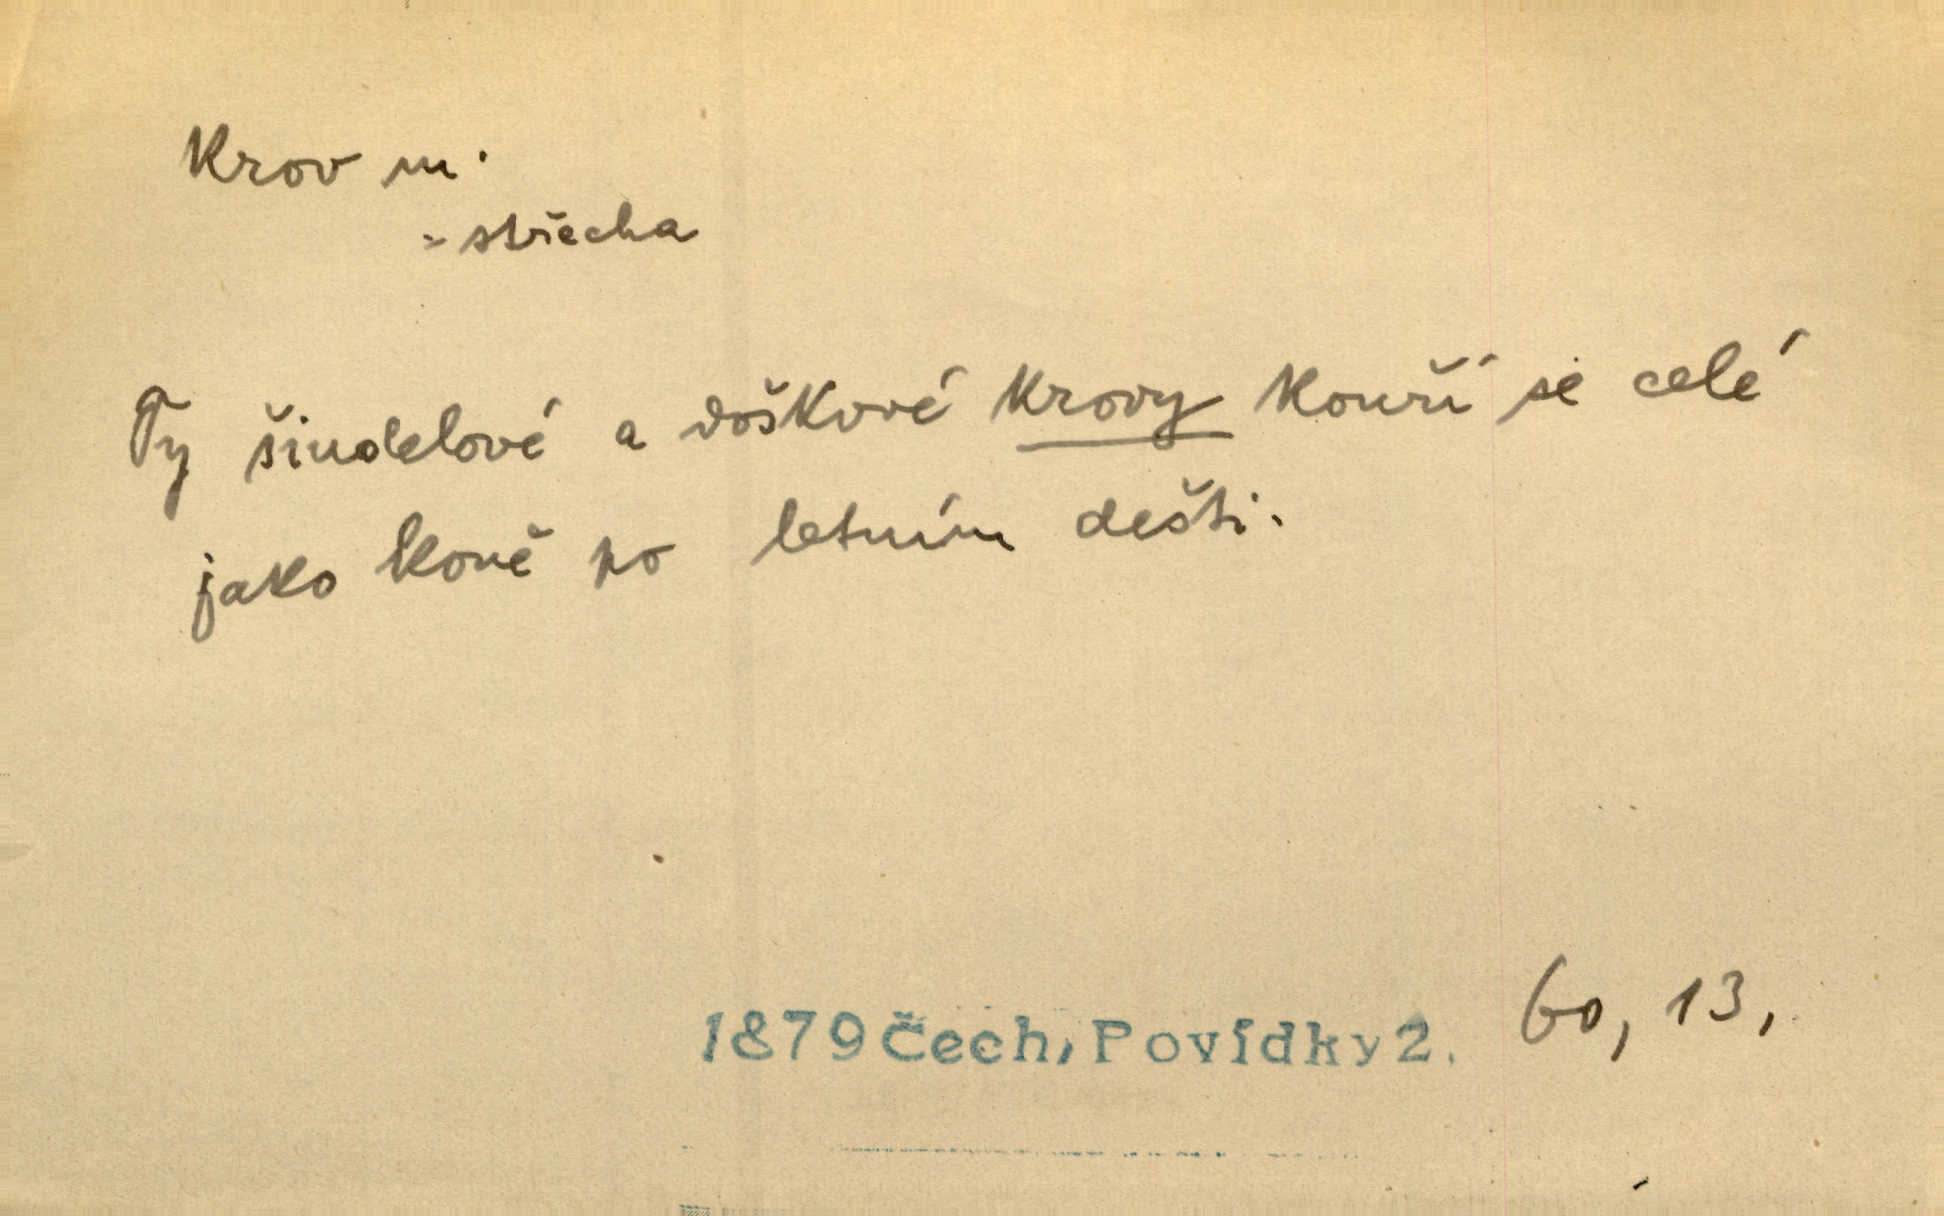 Krov m.
= střecha
Ty šindelové a doškové krovy kouří se celé
jako koně po letním dešti.
1879 Čech, Povídky 2. 60, 13,